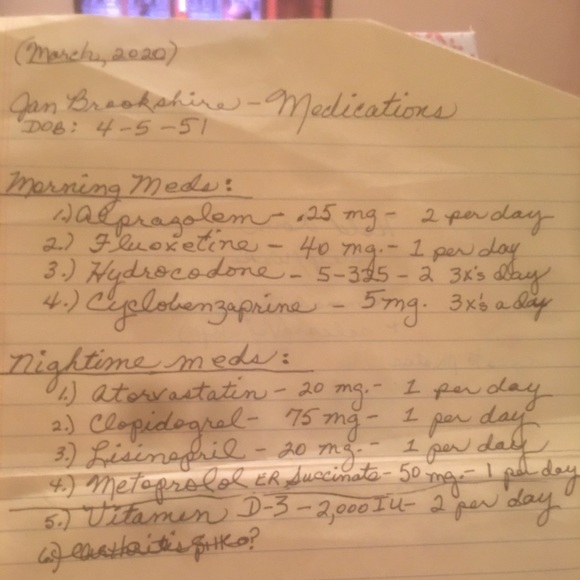 (March, 2020)
Jan Brookshire - Medications
DOB: 4-5-51
Morning Meds:
1.) Alprazolem - .25 mg - 2 per day
2.) Fluoxetine - 40 mg. - 1 per day
3.) Hydrocodone - 5-325 - 2 3x's day
4.) Cyclobenzaprine - 5 mg. 3x's a day
Nightime meds:
1.) Atorvastatin - 20 mg. - 1 per day
2.) Clopidogrel - 75 mg - 1 per day
3.) Lisinopril - 20 mg. - 1 per day
4.) Metoprolol ER Succinate - 50 mg. - 1 per day
5.) Vitamin D-3 - 2,000 IU - 2 per day
6.)